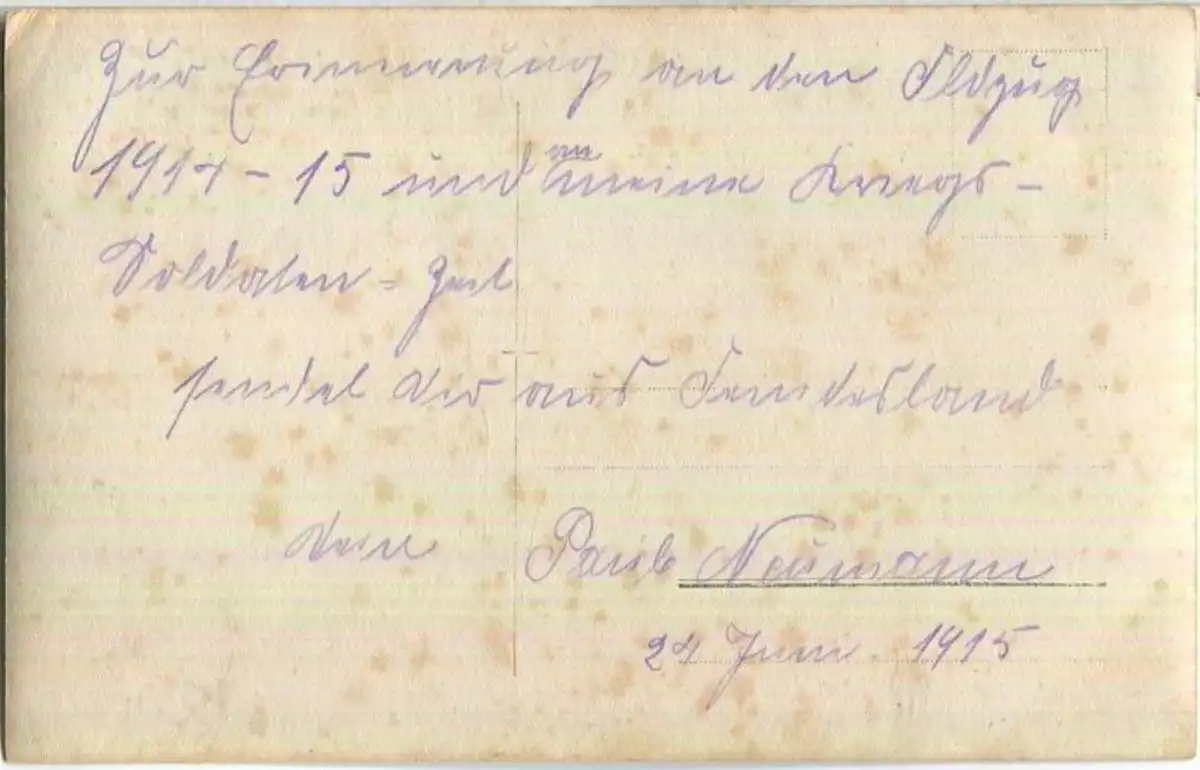 Zur Erinnerung an den Fldzug
1914 - 15 und an meine Kriegs-
Soldaten = Zeit
sendet dir aus Feindesland
dein Paul Neumann
24 Juni 1915